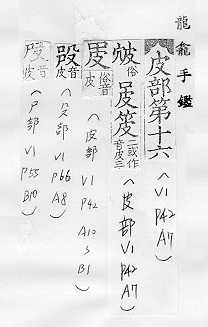 龍龕手鑑
皮部第十六（V1 P42 A7）
俗 二或作音皮三（皮部 V1 P42 A7）
俗音皮（皮部 V1 P42 A10 B1）
音皮（殳部 V1 P66 A8）
音皮（尸部 V1 P55 B10）